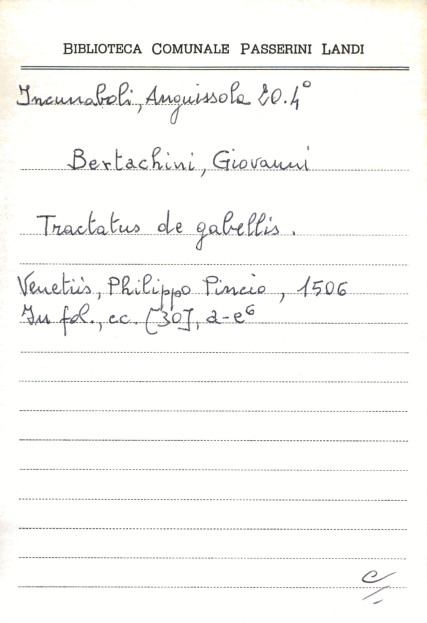 BIBLIOTECA COMUNALE PASSERINI LANDI
Incunaboli, Anguissola 20.4°
Bertachini, Giovanni
Tractatus de gabellis.
Venetiis, Philippo Pincio, 1506
In fol., cc. [30], a-e⁶